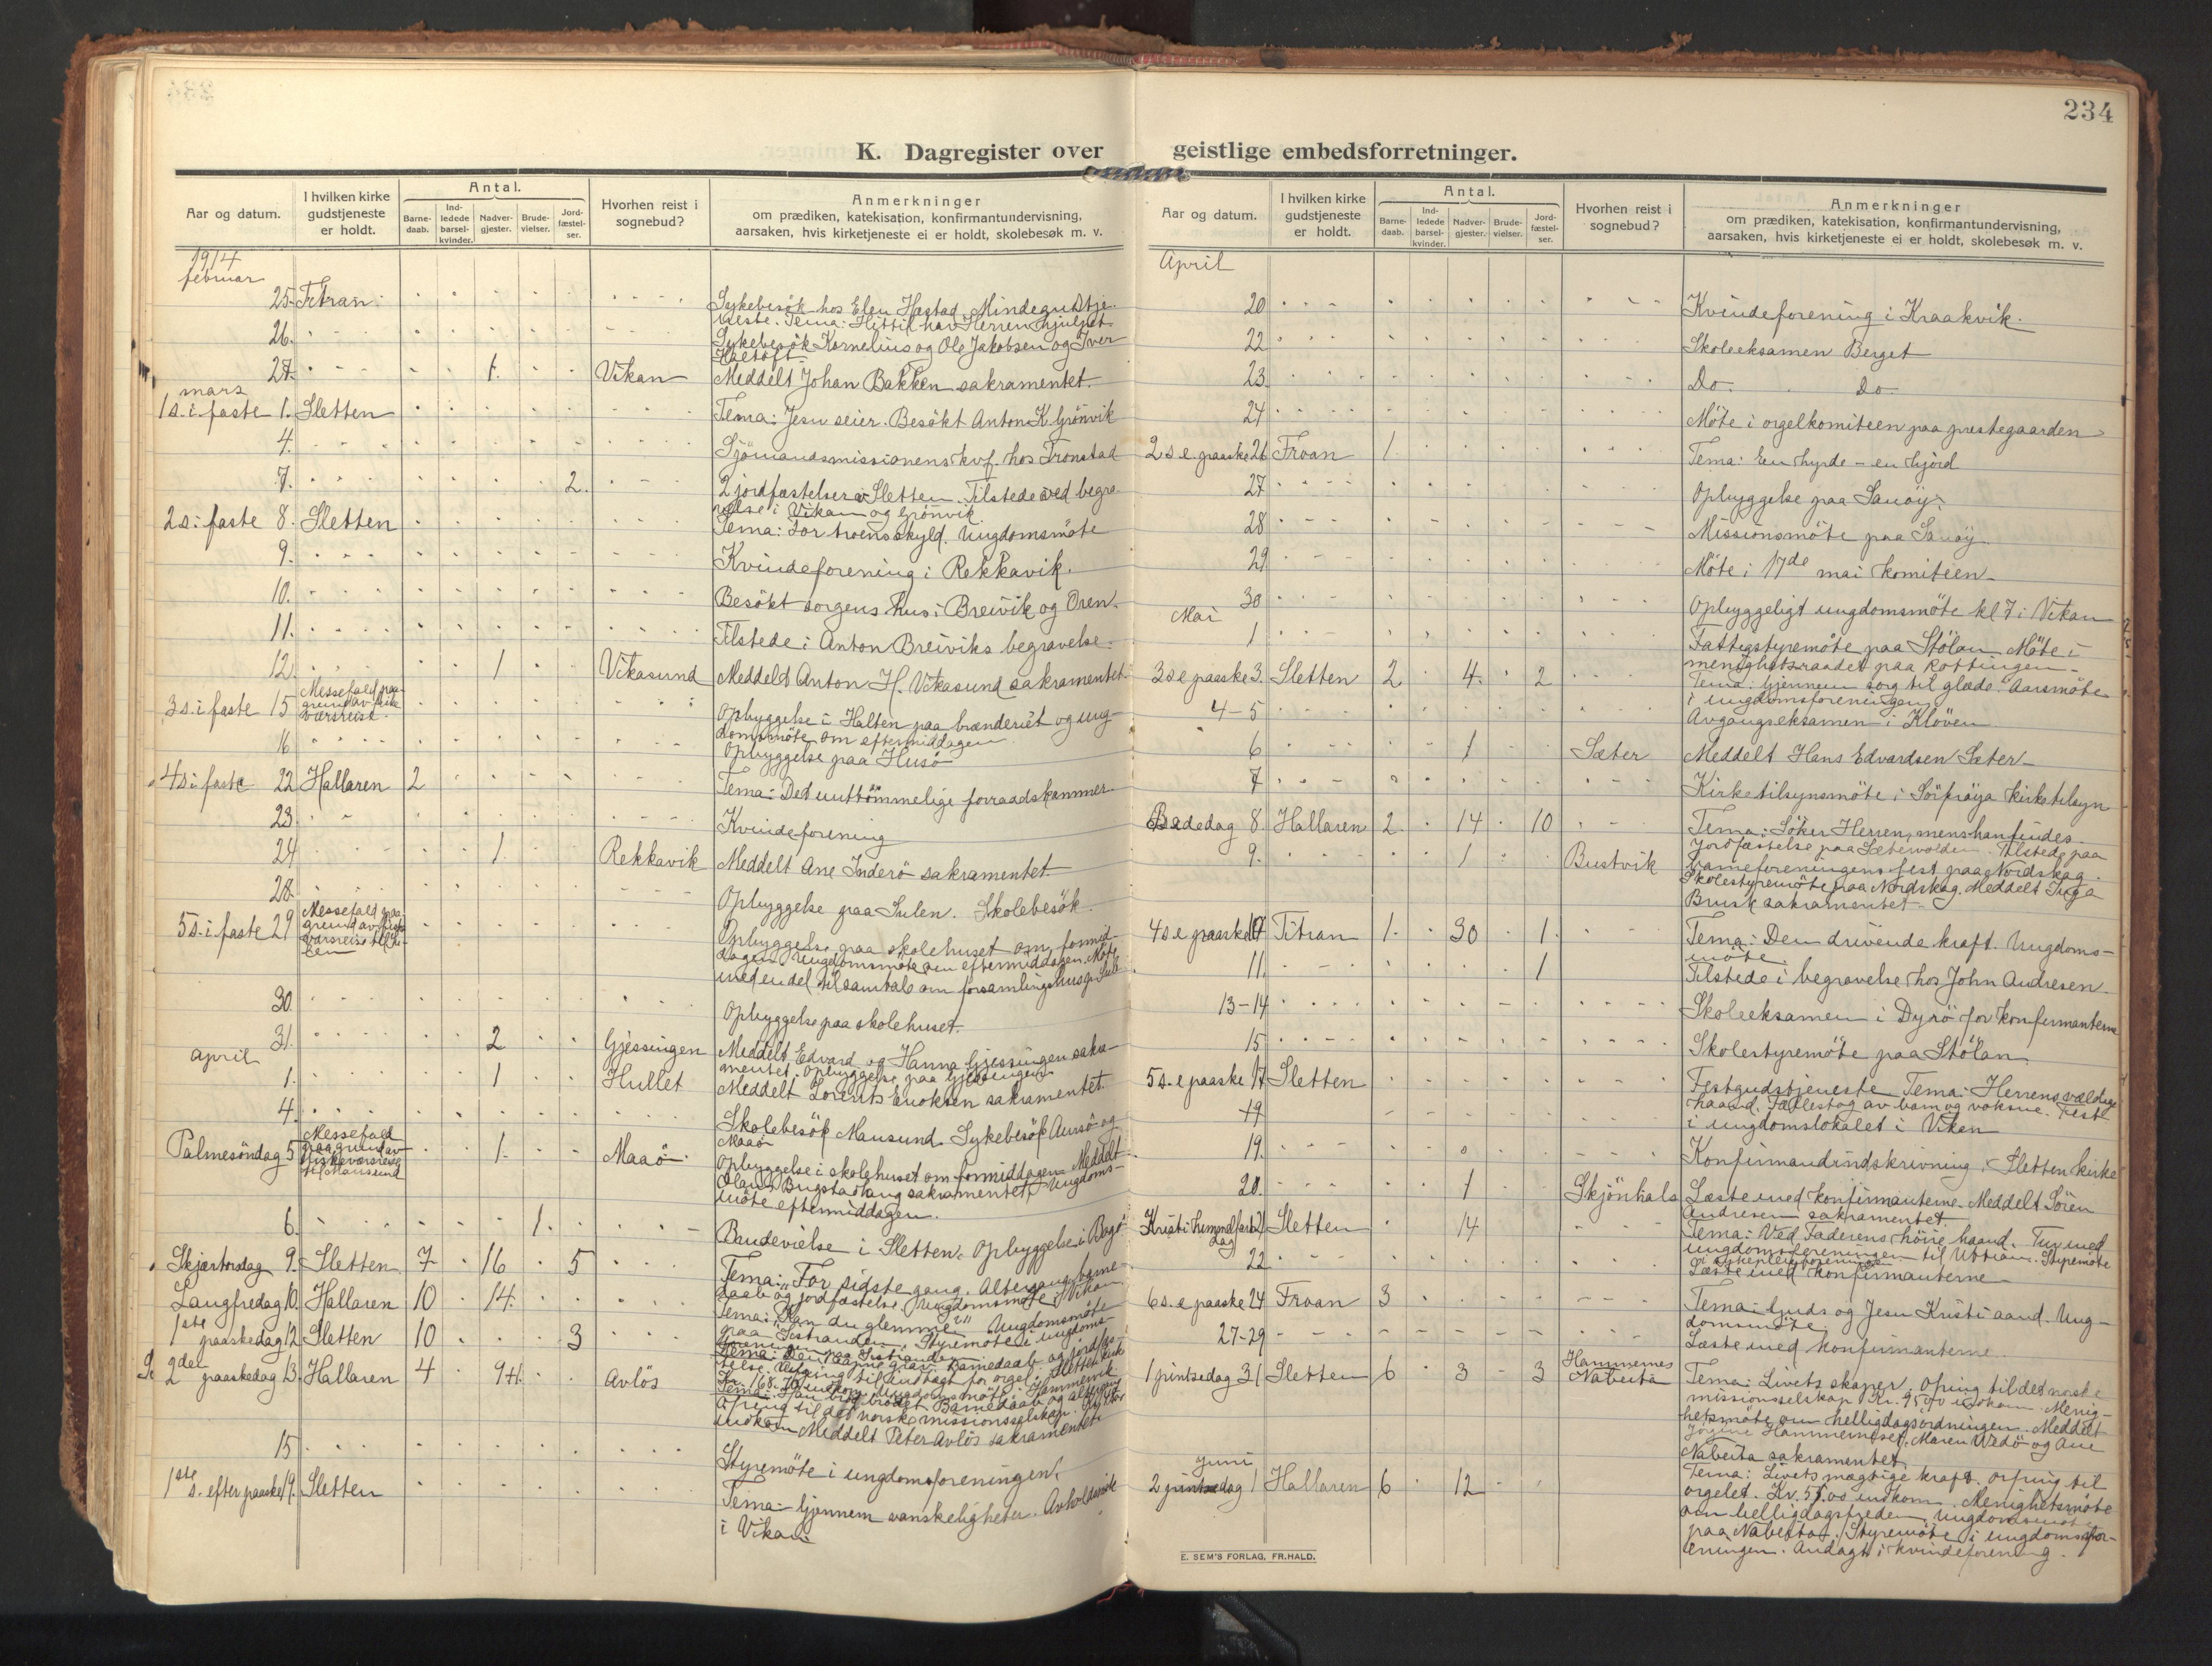 234
K. Dagregister over geistlige embedsforretninger.
Aar og datum.
I hvilken kirke gudstjeneste er holdt.
Antal.
Barne-daab.
Ind-ledede barsel-kvinder.
Nadver-gjester.
Brude-vielser.
Jord-fæstel-ser.
Hvorhen reist i sognebud?
Anmerkninger
om prædiken, katekisation, konfirmantundervisning,
aarsaken, hvis kirketjeneste ei er holdt, skolebesøk m. v.
1914
februar
25. Titran. Sykebesök hos Elen Hastad. Mindegudstje-
neste. Tema: Hittil har Herren hjulpet.
26. Sykebesök Kornelius og Ole Jakobsen og Iver
27. 1. Vikan Meddelt Johan Bakken sakramentet.
mars
1 s. i faste 1. Sletten Tema: Jesu seier. Besökt Anton K. Grönvik
4. Sjömandsmissionens kvf. hos Tronstad
7. 2. 2 jordfæstelser i Sletten. Tilstede ved begra-
velse i Vikan og Grönvik.
2 s. i faste 8. Sletten Tema: For troens skyld. Ungdomsmöte
9. Kvindeforening i Rekkavik.
10. Besökt sorgens hus i Breivik og Oren.
11. Tilstede i Anton Breiviks begravelse.
12. 1 Vikasund Meddelt Anton H. Vikasund sakramentet.
3 s. i faste 15 Messefald paa
grund av fiske
værsreise.
Opbyggelse i Halten paa brænderiet og ung-
domsmöte om eftermiddagen
16 Opbyggelse paa Husö
4 s. i faste 22 Hallaren 2 Tema: Det uuttömmelige forraadskammer.
23. Kvindeforening
24 1. Rekkavik Meddelt Ane Inderö sakramentet
28. Opbyggelse paa Sulen. Skolebesök.
5 s. i faste 29 Messefald paa
grund av fiske
værsreise til Su-
len
Opbyggelse paa skolehuset om formid-
dagen. Ungdomsmöte om eftermiddagen. Möte
med en del til samtale om forsamlingshus p. Sule
30. Opbyggelse paa skolehuset.
31. 2 Gjessingen Meddelt Edvard og Hanna Gjessingen sakra-
mentet. Opbyggelse paa Gjessingen
April
1. 1 Hullet Meddelt Lorents Enoksen sakramentet.
4. Skolebesök Mausund. Sykebesök Aursö og
Maaö
Palmesöndag 5 Messefald
paa grund av
fiskeværsreise
til Mausund
1. Maaö
Opbyggelse i skolehuset om formiddagen. Meddelt
Olaus Bugstadhaug sakramentet. Ungdoms-
möte eftermiddagen.
6. 1. Brudevielse i Sletten. Opbyggelse i Bogö
Skjærtorsdag 9. Sletten 7 16 5 Tema: For sidste gang. Altergang, barne-
daab og jordfæstelse. Ungdomsmöte i Vikan
Langfredag 10. Hallaren 10 14. Tema: "Kan du glemme?" Ungdomsmöte
paa Sistranden. Styremöte i ungdoms-
foreningen paa Sistranden
1ste paaskedag 12 Sletten 10 3 Tema: Den aapne grav. Barnedaab og jordfæs-
telse. Ofring til indtægt for orgel i Sletten kirke
Kr. 168.70 indkom. Ungdomsmöte i Hammervik
2den paaskedag 13. Hallaren 4 9+1. Avlös Tema: Han bröt brödet. Barnedaab og altergang
Ofring til det norske missionsselskap.
indkom Meddelt Peter Avlös sakramentet
15 Styremöte i ungdomsforeningen.
1ste s. efter paaske 19. Sletten Tema: Gjennem vanskeligheter. Avholdsmöte
i Vikan
Aar og datum.
I hvilken kirke gudstjeneste er holdt.
Antal.
Barne-daab.
Ind-ledede barsel-kvinder.
Nadver-gjester.
Brude-vielser.
Jord-fæstel-ser.
Hvorhen reist i sognebud?
Anmerkninger
om prædiken, katekisation, konfirmantundervisning,
aarsaken, hvis kirketjeneste ei er holdt, skolebesøk m. v.
April
20 Kvindeforening i Kraakvik.
22 Skoleeksamen Berget
23. Do. Do.
24 Möte i orgelkomiteen paa prestegaarden
2 s. e. paaske 26 Froan 1. Tema: En hyrde – en hjord
27 Opbyggelse paa Sauöy.
28 Missionsmöte paa Sauöy
29 Möte i 17de mai komiteen.
30 Opbyggeligt ungdomsmöte kl 7 i Vikan
Mai
1 Fattigstyremöte paa Stölan. Möte i
menighetsraadet paa Rottingen.
3 s e paaske 3. Sletten 2 4. 2 Tema: Gjennem sorg til glæde. Aarsmöte
i ungdomsforeningen
4-5 Avgangseksamen i Klöven
6 1 Sæter Meddelt Hans Edvardsen Sæter
7 Kirketilsynsmöte i Sörfröya kirketilsyn
Bededag 8. Hallaren 2. 14 10 Tema: Söker Herren, mens han findes.
Jordfæstelse paa Sætervolden. Tilstede paa
barneforeningens fest paa Nordskag.
9. 1 Bustvik Skolestyremöte paa Nordskag. Meddelt Inga
Brusk sakramentet
4 s e paaske 10 Titran 1. 30 1. Tema: Den drivende kraft. Ungdoms-
möte.
11. 1 Tilstede i begravelse hos John Andresen
13-14 Skoleeksamen i Dyrö for konfirmanterne
15 Skolestyremöte paa Stölan
5 s. e paaske 17 Sletten Festgudstjeneste Tema: Herrens vældige
haand. Fællestog av barn og voksne. Fest
i ungdomslokalet i Viken
19
19. Konfirmandindskrivning i Sletten kirke
20. 1 Skjönhals Læste med konfirmanterne. Meddelt Sören
Andresen sakramentet.
Kristi himmelfarts 21 Sletten 14 Tema: Ved Faderens höire haand. Tur med
dag
ungdomsforeningen til Uttian. Styremöte
i sykepleieforeningen
22 Læste med konfirmanterne
6 s. e paaske 24 Froan 3 Tema: Guds og Jesu Kristi aand. Ung-
domsmöte.
27-29 Læste med konfirmanterne.
1 pintsedag 31 Sletten 6 3 3 Hammernes
Nabeita
Tema: Livets skaper. Ofring til det norske
missionsselskap Kr. indkom. Menig-
hetsmöte om helligdagsordningen. Meddelt
Jörgine Hammernes, Maren Wedö og Ane
Nabeita sakramentet.
juni
2 pintsedag 1 Hallaren 6 12 Tema: Livets mægtige kraft. Ofring til
orgelet. Kr. 55.00 indkom. Menighetsmöte
om helligdagsfreden. Ungdomsmöte
paa Nabeita. Styremöte i ungdomsfor-
eningen. Andagt i kvindeforening.
E. SEM'S FORLAG, FR.HALD.